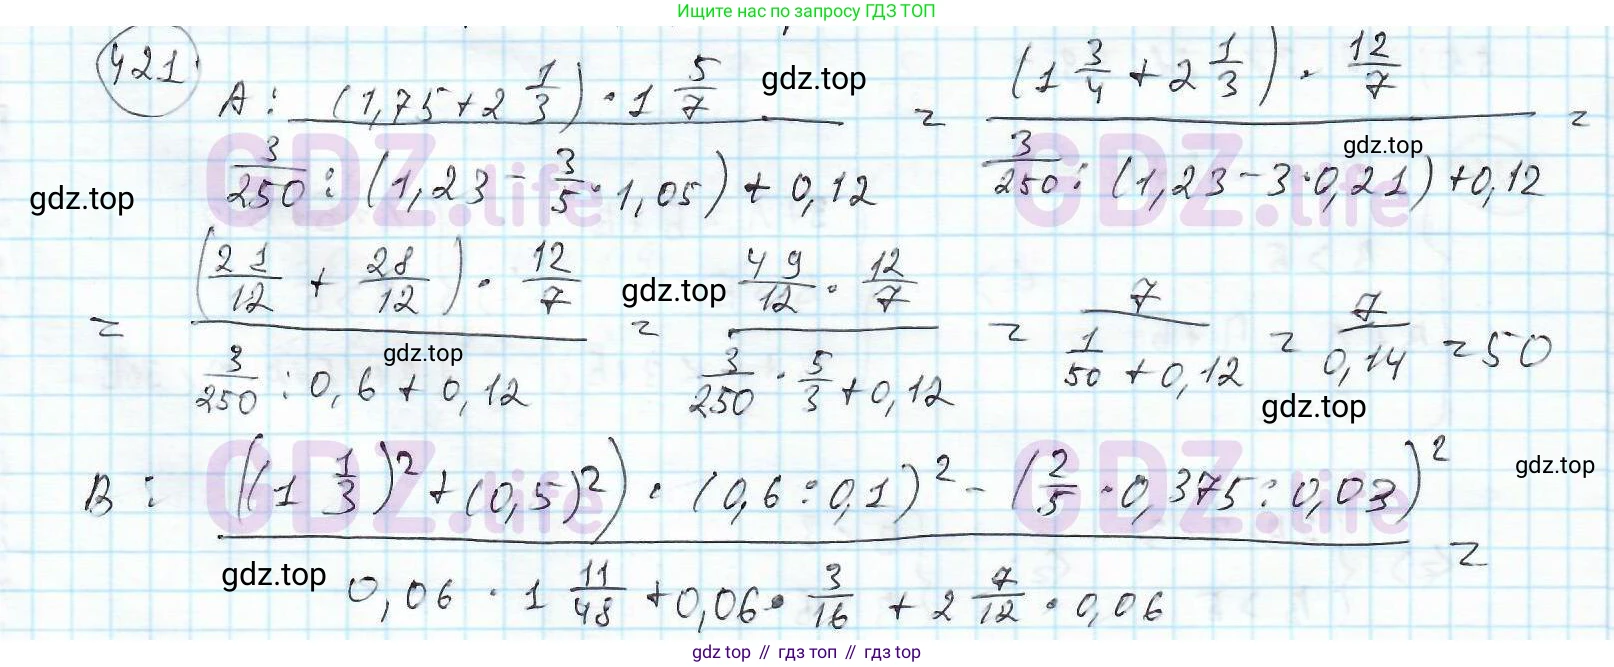 Ищите нас по запросу ГДЗ ТОП
421.
A: ((1,75 + 2 1/3) · 1 5/7) / (3/250 : (1,23 − 3/5 · 1,05) + 0,12) = ((1 3/4 + 2 1/3) · 12/7) / (3/250 : (1,23 − 3 · 0,21) + 0,12) =
gdz.top
gdz.top
gdz.top
= ((21/12 + 28/12) · 12/7) / (3/250 : 0,6 + 0,12) = (49/12 · 12/7) / (3/250 · 5/3 + 0,12) = 7 / (1/50 + 0,12) = 7/0,14 = 50
gdz.top
gdz.top
gdz.top
GDZ.life
GDZ.life
B: (((1 1/3)² + (0,5)²) · (0,6 : 0,1)² − (2/5 · 0,375 : 0,03)²) / (0,06 · 1 11/48 + 0,06 · 3/16 + 2 7/12 · 0,06) =
gdz.top
gdz.top
GDZ.life
GDZ.life
gdz top // гдз топ // гдз top